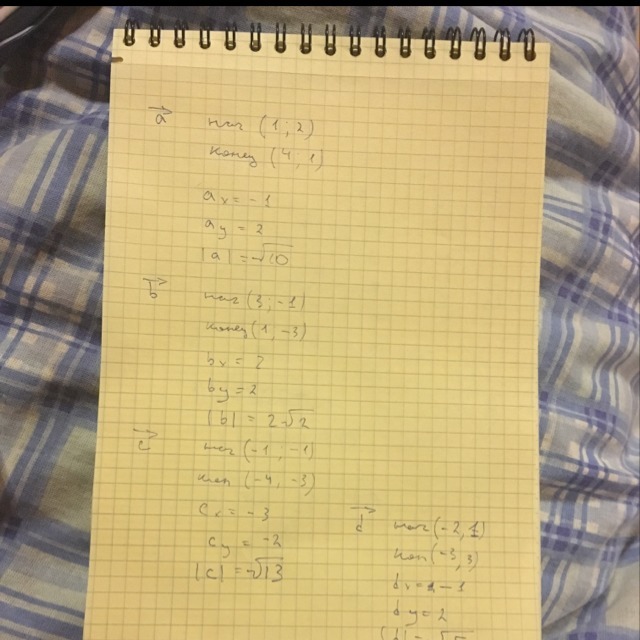 a⃗ нач (1, 2)
конец (4, 1)
aₓ = -1
aᵧ = 2
|a| = √10
b⃗ нач (3, -1)
конец (1, -3)
bₓ = 2
bᵧ = 2
|b| = 2√2
c⃗ нач (-1, -1)
кон (-4, -3)
cₓ = -3
cᵧ = -2
|c| = √13
d⃗ нач (-2, 1)
кон (-3, 3)
dₓ = -1
dᵧ = 2